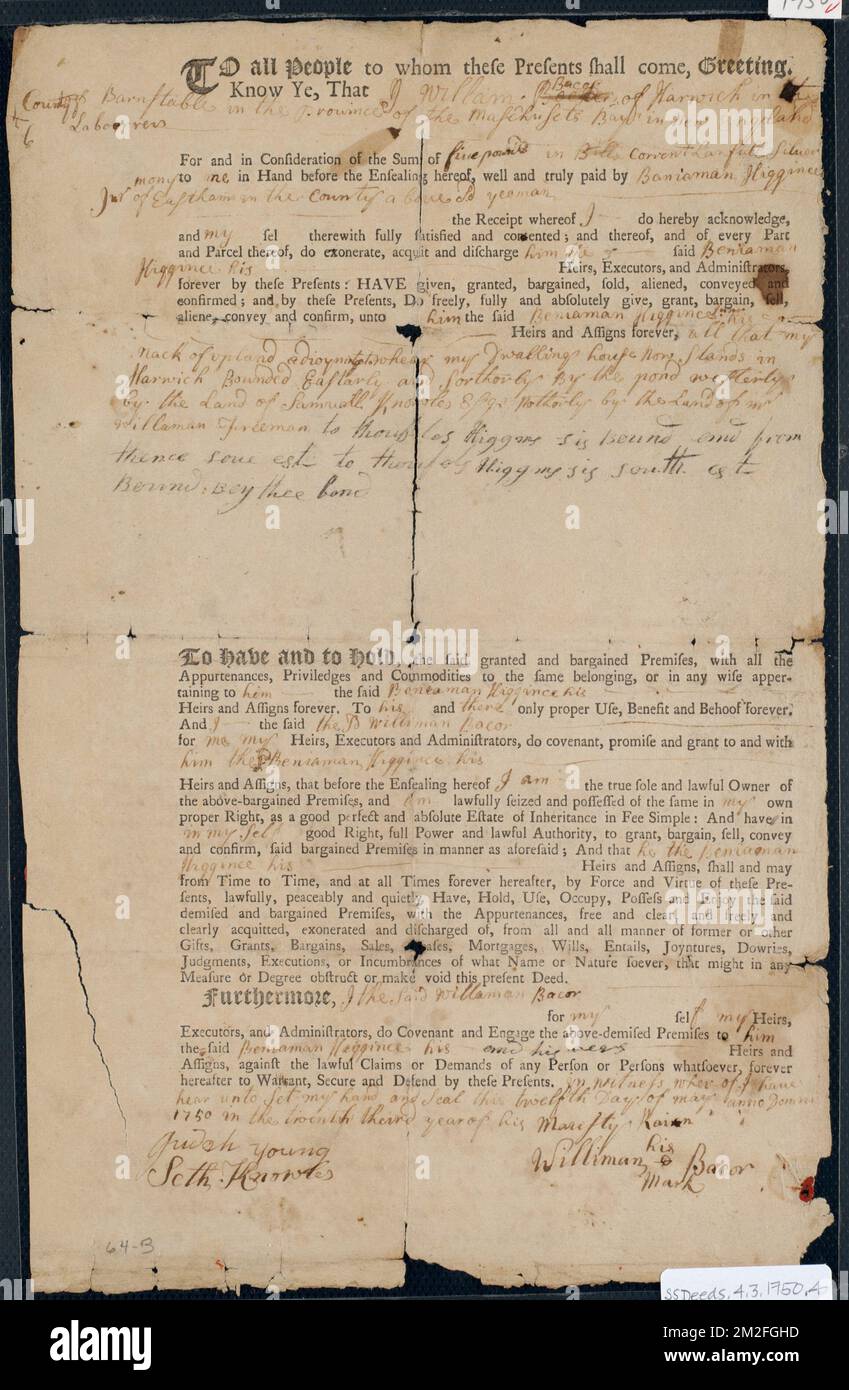 1750
TO all People to whom these Presents shall come, Greeting.
Know Ye, That I William Bacor of Harwich in the
County of Barnstable in the Province of the Masschusets Bay in new England
Labourer
For and in Consideration of the Sum of five pounds in Bills Corrent Lanful Silver
mony to me in Hand before the Ensealing hereof, well and truly paid by Baniaman Higgince
Jur of Eastham in the County above sd yeoman
the Receipt whereof I do hereby acknowledge,
and my self therewith fully satisfied and contented; and thereof, and of every Part
and Parcel thereof, do exonerate, acquit and discharge him the said Beniaman
Higgince his Heirs, Executors, and Administrators,
forever by these Presents: HAVE given, granted, bargained, sold, aliened, conveyed and
confirmed; and by these Presents, Do freely, fully and absolutely give, grant, bargain, sell,
aliene, convey and confirm, unto him the said Beniaman Higgince his
Heirs and Assigns forever, all that my
Nack of upland whear my Dwalling house Now Stands in
Harwich Bounded Eastarly and Sorthorly By the pond westerly
by the Land of Samuell Knowles Esqr Nothorly by the Land of mr
Willaman Freeman to Higgins sis Bound and from
thence soue est to Higgins sis south est
Bound: Bey thee bond
To have and to hold, the said granted and bargained Premises, with all the
Appurtenances, Priviledges and Commodities to the same belonging, or in any wise apper-
taining to him the said Beniaman Higgince his
Heirs and Assigns forever. To his and there only proper Use, Benefit and Behoof forever.
And I the said the sd Williman Bacor
for me my Heirs, Executors and Administrators, do covenant, promise and grant to and with
him the sd Beniaman Higgince his
Heirs and Assigns, that before the Ensealing hereof I am the true sole and lawful Owner of
the above-bargained Premises, and am lawfully seized and possessed of the same in my own
proper Right, as a good perfect and absolute Estate of Inheritance in Fee Simple: And have in
in my Self good Right, full Power and lawful Authority, to grant, bargain, sell, convey
and confirm, said bargained Premises in manner as aforesaid; And that he the Beniaman
Higgince his Heirs and Assigns, shall and may
from Time to Time, and at all Times forever hereafter, by Force and Virtue of these Pre-
sents, lawfully, peaceably and quietly Have, Hold, Use, Occupy, Possess and Enjoy the said
demised and bargained Premises, with the Appurtenances, free and clear, and freely and
clearly acquitted, exonerated and discharged of, from all and all manner of former or other
Gifts, Grants, Bargains, Sales, Leases, Mortgages, Wills, Entails, Joyntures, Dowries,
Judgments, Executions, or Incumbrances of what Name or Nature soever, that might in any
Measure or Degree obstruct or make void this present Deed.
Furthermore, I the Said Willaman Bacor
for my self my Heirs,
Executors, and Administrators, do Covenant and Engage the above-demised Premises to him
the said Beniaman Higgince his and his Heirs and
Assigns, against the lawful Claims or Demands of any Person or Persons whatsoever, forever
hereafter to Warrant, Secure and Defend by these Presents. In witness wherof I have
hear unto Set my hand and Seal this twelfth Day of may anno Domini
1750 in the twentith theird year of his Maiesty Raien
Judah Young
Seth Knowles
his
Williman Bacor
Mark
64-B
SSDeeds.4.3.1750.A
alamy
Image ID: 2M2FGHD
www.alamy.com